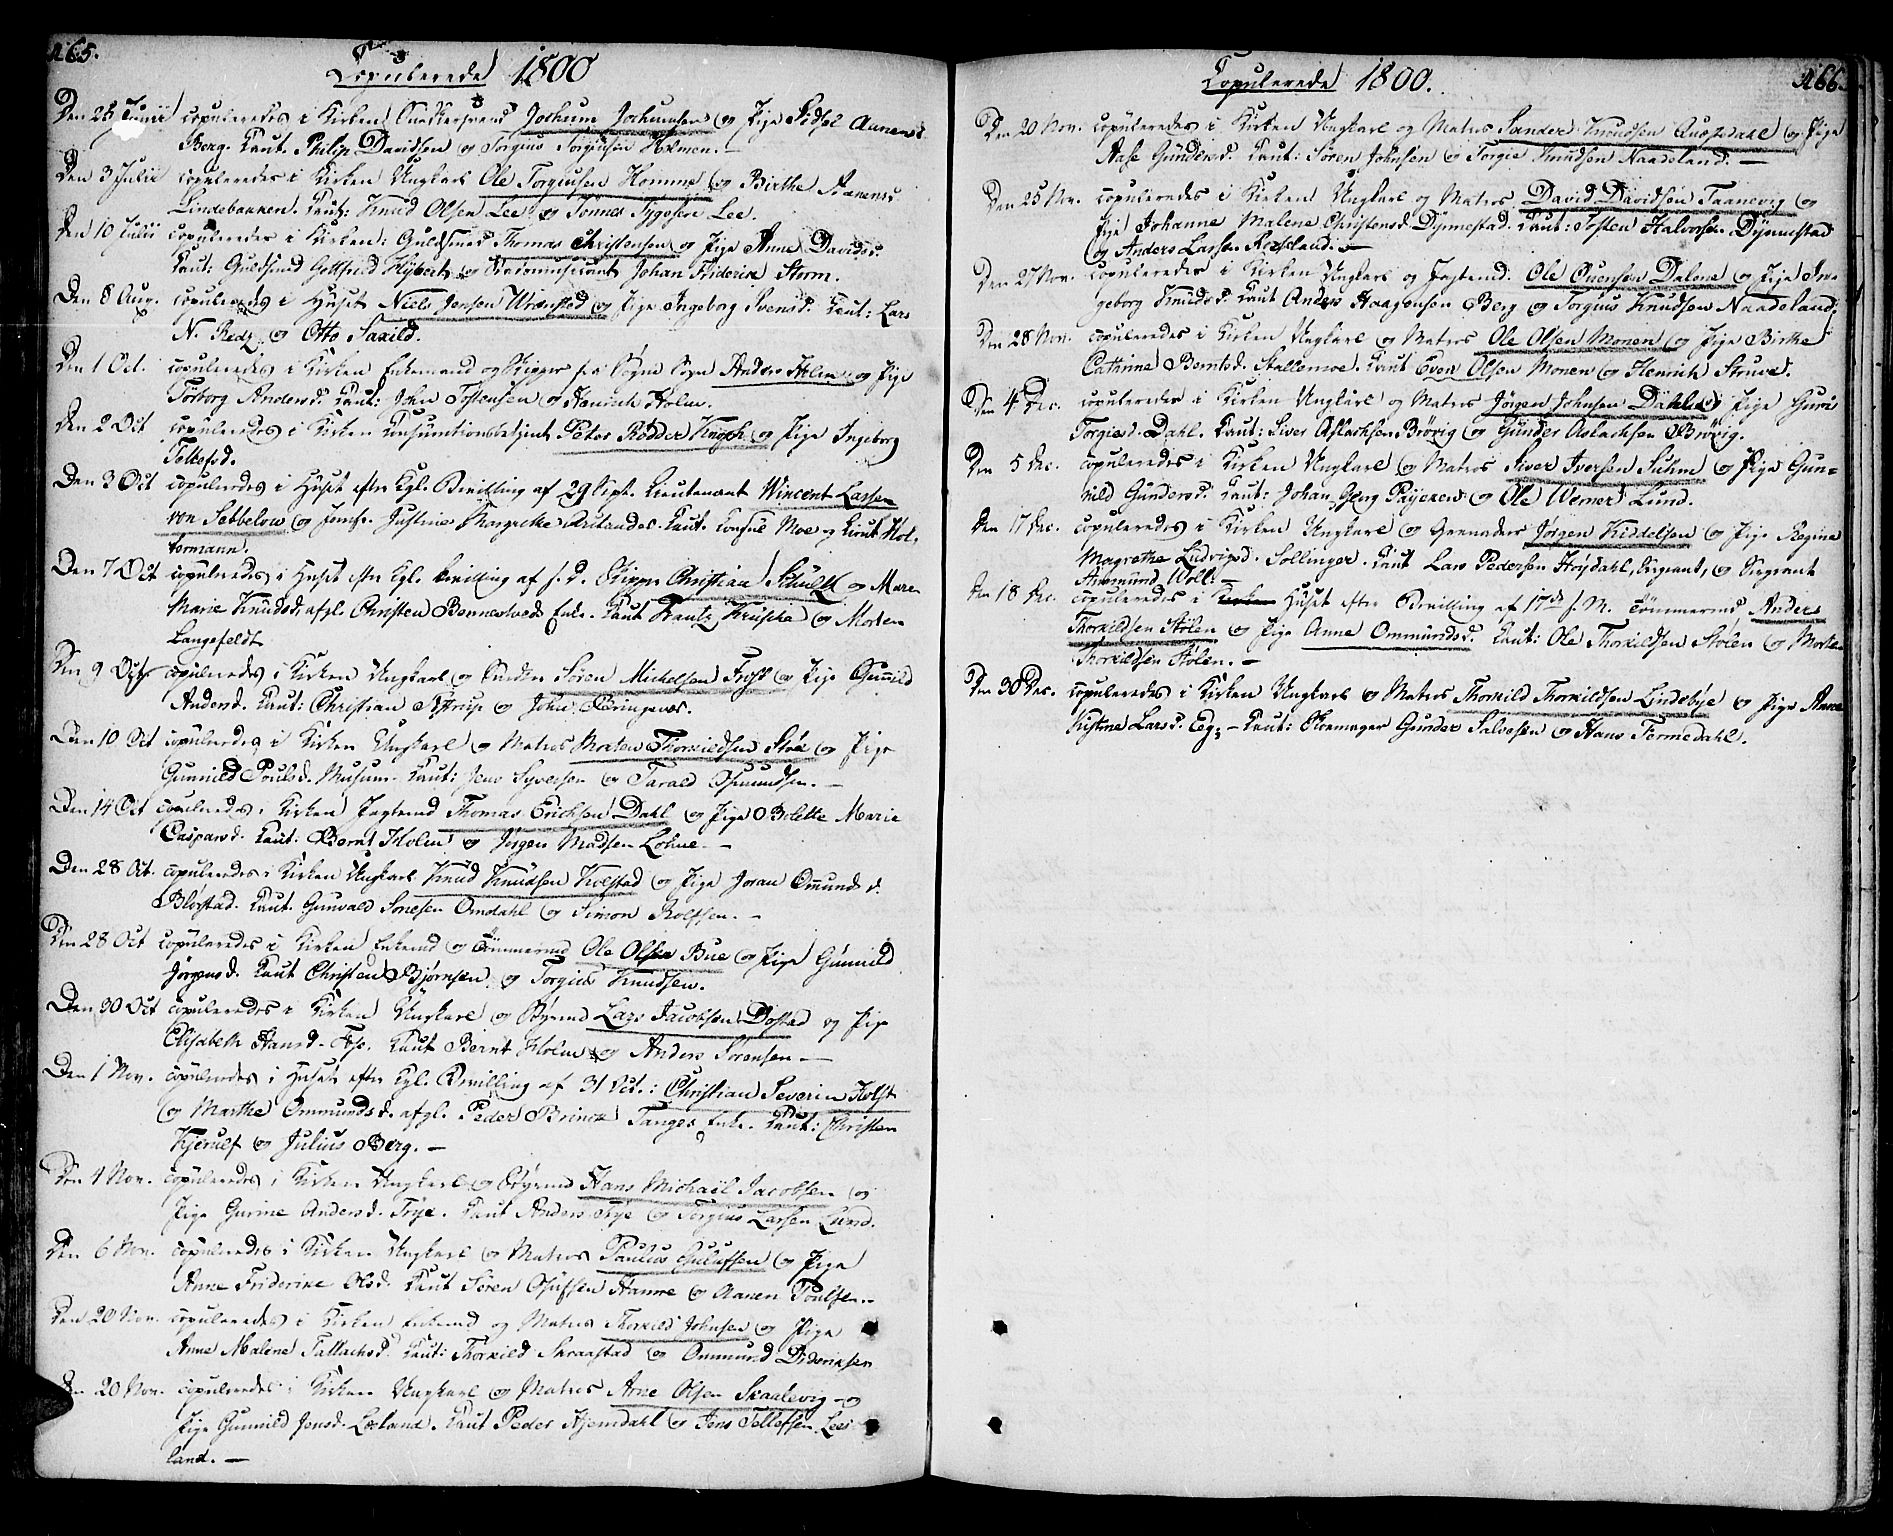 465.
Copulerede 1800
Den 26 Junii copuleredes i Kirken Snedkersvend Jochum Jochumsen og Pige Sidsel Aanensd.
Berg. Caut. Philip Davidsen og Torgius Torgiusen Holmen. –
Den 3 Julii copuleredes i Kirken Ungkarl Ole Torgiusen Homme og Birthe Aanensd.
Lindebakken. Caut: Knud Olsen Lee og Tønnes Tygesen Lee.
Den 10 Julii copuleredes i Kirken: Guldsmed Thomas Christensen og Pige Anne Davidsd.
Caut: Guldsmed Gottfried Hybert og Stadsmusicant Johan Friderik Storm.
Den 8 Aug. copuleredes i Huset Niels Jensen Wranstad og Pige Ingeborg Svensd. Caut: Lars
N. Redz og Otto Saxild.
Den 1 Oct. copuleredes i Kirken Enkemand og Skipper fra Sogne Sogn Anders Holm og Pige
Torborg Andersd. Caut: John Tostensen og Henrich Holm.
Den 2 Oct copuleredes i Kirken Consumtionsbetjent Peter Rødder Knoph og Pige Ingeborg
Tellefsd.
Den 3 Oct copuleredes i Huset efter Kgl. Bevilling af 29 Sept. Lieutenant Wincent Lassen
von Sebbelow og Jomfr. Justine Margrethe Arctander. Caut. Consul Moe og Lieut Hol-
termann.
Den 7 Oct copuleredes i Huset efter Kgl. Bevilling af s. d. Skipper Christian Schultz og Mare
Marie Knudsd. afgl. Christen Bennestveds Enke. Caut Frautz Kruschka og Morten
Langefeldt
Den 9 Oct copuleredes i Kirken Ungkarl og Søren Michelsen Trost og Pige Gunnild
Andersd. Caut: Christian Astrup og John Bringenes.
Den 10 Oct copuleredes i Kirken Ungkarl og Matros Morten Thorkildsen Støl og Pige
Gunnild Poulsd. Musum. Caut: Jens Syversen og Tarald Osmundsen. –
Den 14 Oct copuleredes i Kirken Jagtemd Thomas Erichsen Dahl og Pige Bolette Marie
Caspersd. Caut: Bernt Holm og Jørgen Madsen Lohne. –
Den 28 Oct. copuleredes i Kirken Ungkarl Knud Knudsen Kolstad og Pige Joran Omunds d.
Bløstad. Caut. Gunvald Sonesen Omdahl og Simon Rolfsen. –
Den 28 Oct copuleredes i Kirken Enkemd og Tømmermd Ole Olsen Bue og Pige Gunnild
Jørgensd. Caut Christen Bjørnsen og Torgius Knudsen.
Den 30 Oct copuleredes i Kirken Ungkarl og Styrmd Lars Jacobsen Dostad og Pige
Elisabeth Hansd. Caut Bernt Holm og Anders Sørensen –
Den 1 Nov. copuleredes i Huset efter Kgl. Bevilling af 31 Oct.: Christian Severin Holst
og Marthe Ommundsd. afgl. Peder Brinck Tanges Enke. Caut: Christen
Kjerulf og Julius Berg. –
Den 4 Nov. copuleredes i Kirken Ungkarl og Styrmd Hans Michaël Jacobsen og
Pige Gurine Andersd. Frye. Caut Anders Frye og Torgius Larsen Lund.
Den 6 Nov. copuleredes i Kirken Ungkarl og Matros Paulus Gulufsen og Pige
Anne Friderike Olsd. Caut Søren Osufsen Hamre og Aanen Poulsen. –
Den 20 Nov. copuleredes i Kirken Enkemd og Matros Thorkild Johnsen og Pige
Anne Malene Tallachsd. Caut: Thorkild Skraastad og Ommund Dideriksen
Den 20 Nov. copuleredes i Kirken Ungkarl og Matros Arne Olsen Skaalevig og
Pige Gunnild Jensd. Leeland. Caut Peder Hjemdahl og Jens Tellefsen Lee-
land. –
466.
Copulerede 1800.
Den 20 Nov. copuleredes i Kirken Ungkarl og Matros Sander Knudsen Augedahl og Pige
Aase Gundersd. Caut: Søren Johnsen og Torgie Knudsen Naadeland. –
Den 25 Nov. copuleredes i Kirken Ungkarl og Matros David Davidsen Taanevig og
Pige Johanne Malene Christensd. Dynnestad. Caut: Tosten Halvorsen Dynnestad
og Anders Larsen Roseland. –
Den 27 Nov. copuleredes i Kirken Ungkarl og Jagtemd: Ole Evensen Dalene og Pige In-
geborg Knudsd. Caut Anders Haagensen Berg og Torgius Knudsen Naadeland.
Den 28 Nov. copuleredes i Kirken Ungkarl og Matros Ole Olsen Monen og Pige Birthe
Cathrine Berntsd. Stallemoe. Caut Even Olsen Monen og Henrich Struve.
Den 4 Dec. copuleredes i Kirken Ungkarl og Matros Jørgen Johnsen Dahle og Pige Guri
Torgiesd. Dahl. Caut: Siver Aslachsen Brøvig og Gunder Aslachsen Brøvig.
Den 5 Dec. copuleredes i Kirken Ungkarl og Matros Siver Iversen Suhm og Pige Gun-
nild Gundersd. Caut: Johan Georg Payeken og Ole Werner Lund.
Den 17 Dec. copuleredes i Kirken Ungkarl og Grenadeer Jørgen Kiddelsen og Pige Regine
Magrethe Ludvigsd. Sollinger. Caut Lars Pedersen Høydahl, Sergeant, og Sergeant
Ammund Woll.
Den 18 Dec. copuleredes i Kirken Huset efter Bevilling af 17de s. M. Tømmermd Anders
Thorkildsen Stølen og Pige Anne Ommundsd. Caut: Ole Thorkildsen Stølen og Morten
Thorkildsen Stølen. –
Den 30 Dec. copuleredes i Kirken Ungkarl og Matros Thorkild Thorkildsen Lindebye og Pige Anne
Kistine Larsd. Eeg, – Caut: Skomager Gunder Salvesen og Hans Fermedahl.